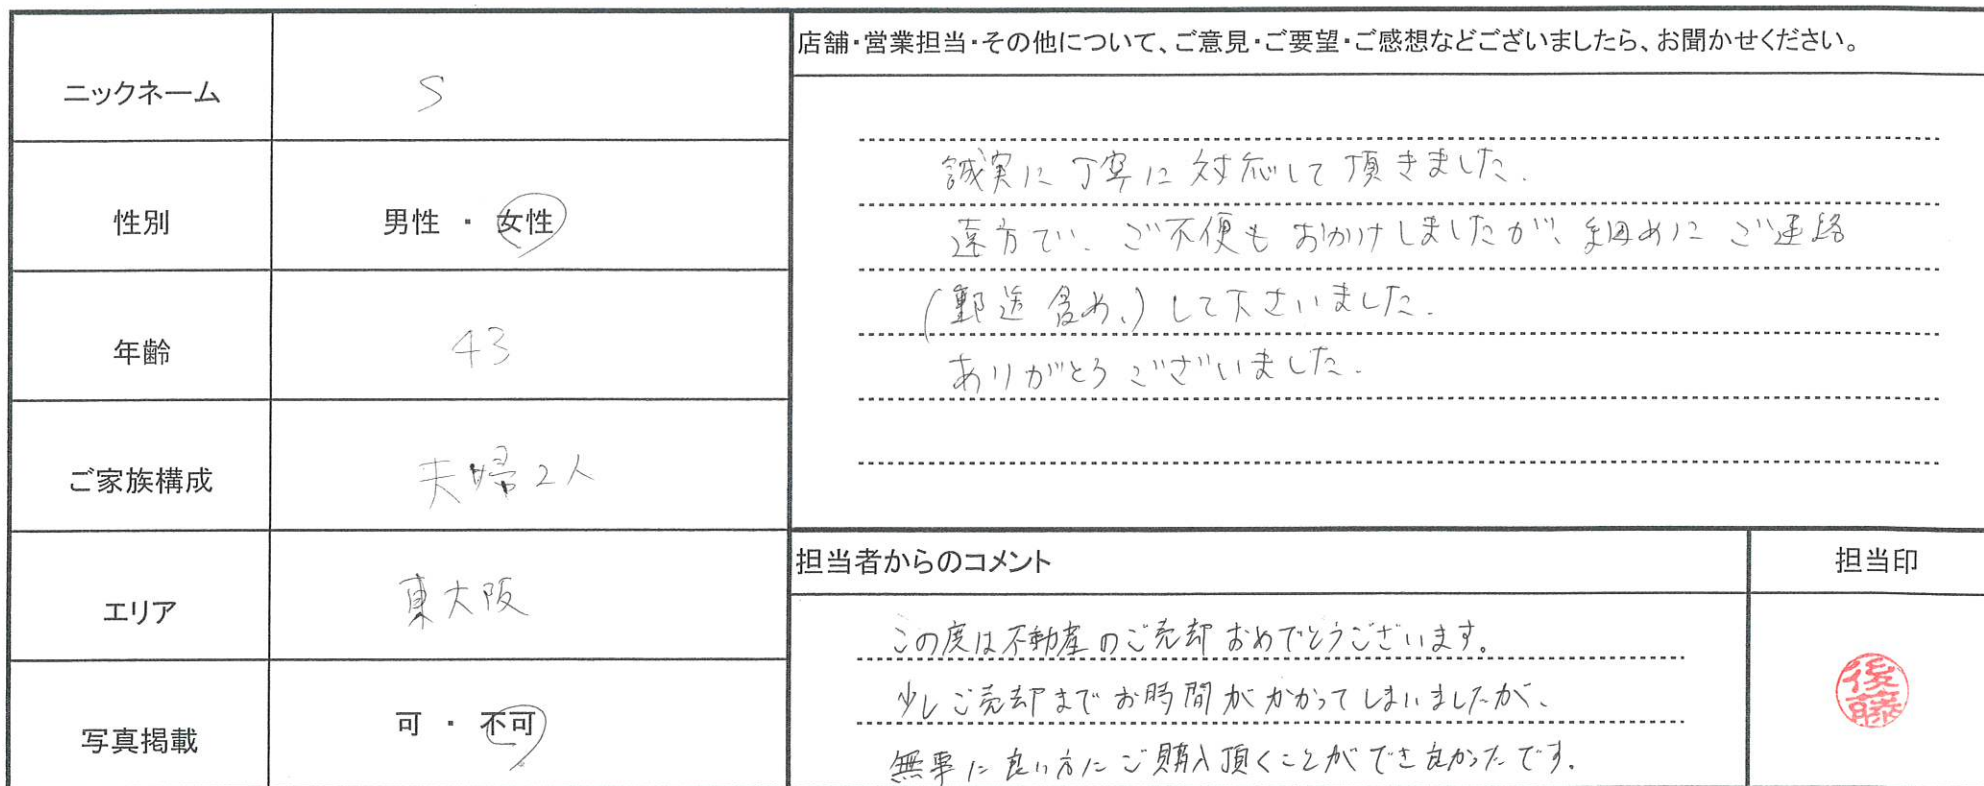 ニックネーム
S
性別
男性 ・ 女性
年齢
43
ご家族構成
夫婦2人
エリア
東大阪
写真掲載
可 ・ 不可
店舗・営業担当・その他について、ご意見・ご要望・ご感想などございましたら、お聞かせください。
誠実に丁寧に対応して頂きました.
遠方で、ご不便もおかけしましたが、細めにご連絡
(郵送含め、)して下さいました.
ありがとうございました.
担当者からのコメント
この度は不動産のご売却おめでとうございます。
少しご売却までお時間がかかってしまいましたが、
無事に良い方にご購入頂くことができ良かったです.
担当印
後藤